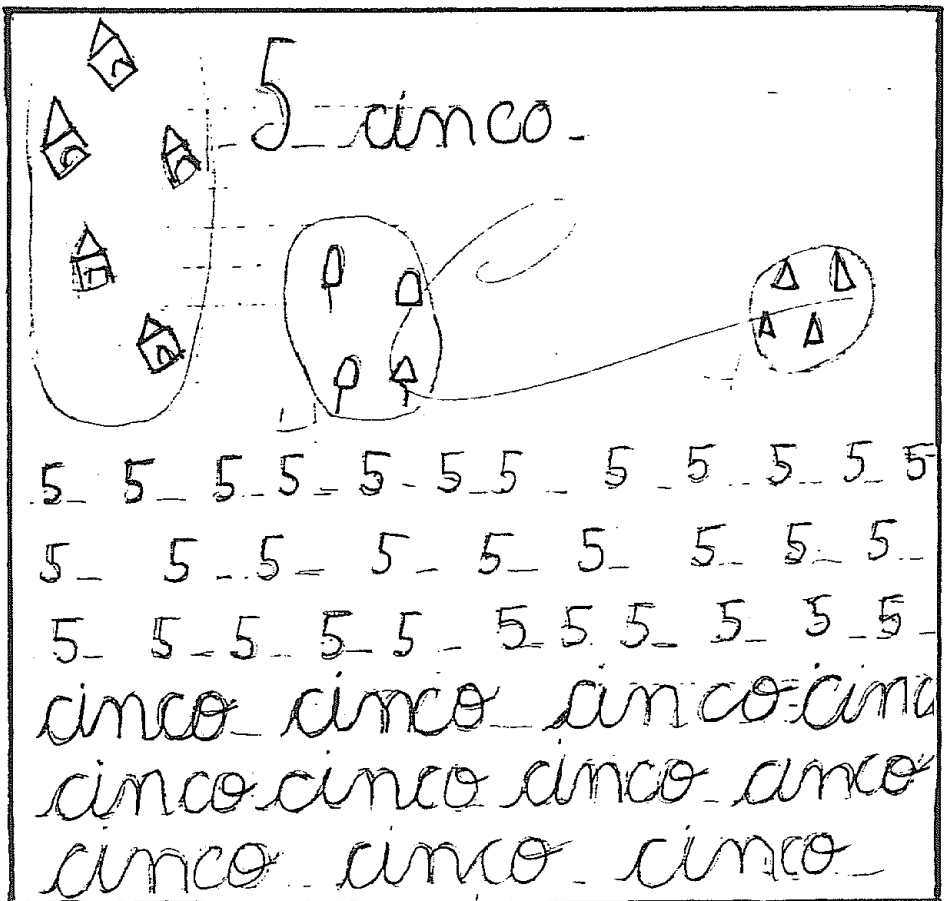 5 cinco
5 5 5 5 5 5 5 5 5 5 5 5
5 5 5 5 5 5 5 5 5
5 5 5 5 5 5 5 5 5 5 5
cinco cinco cinco cinc
cinco cinco cinco cinco
cinco cinco cinco